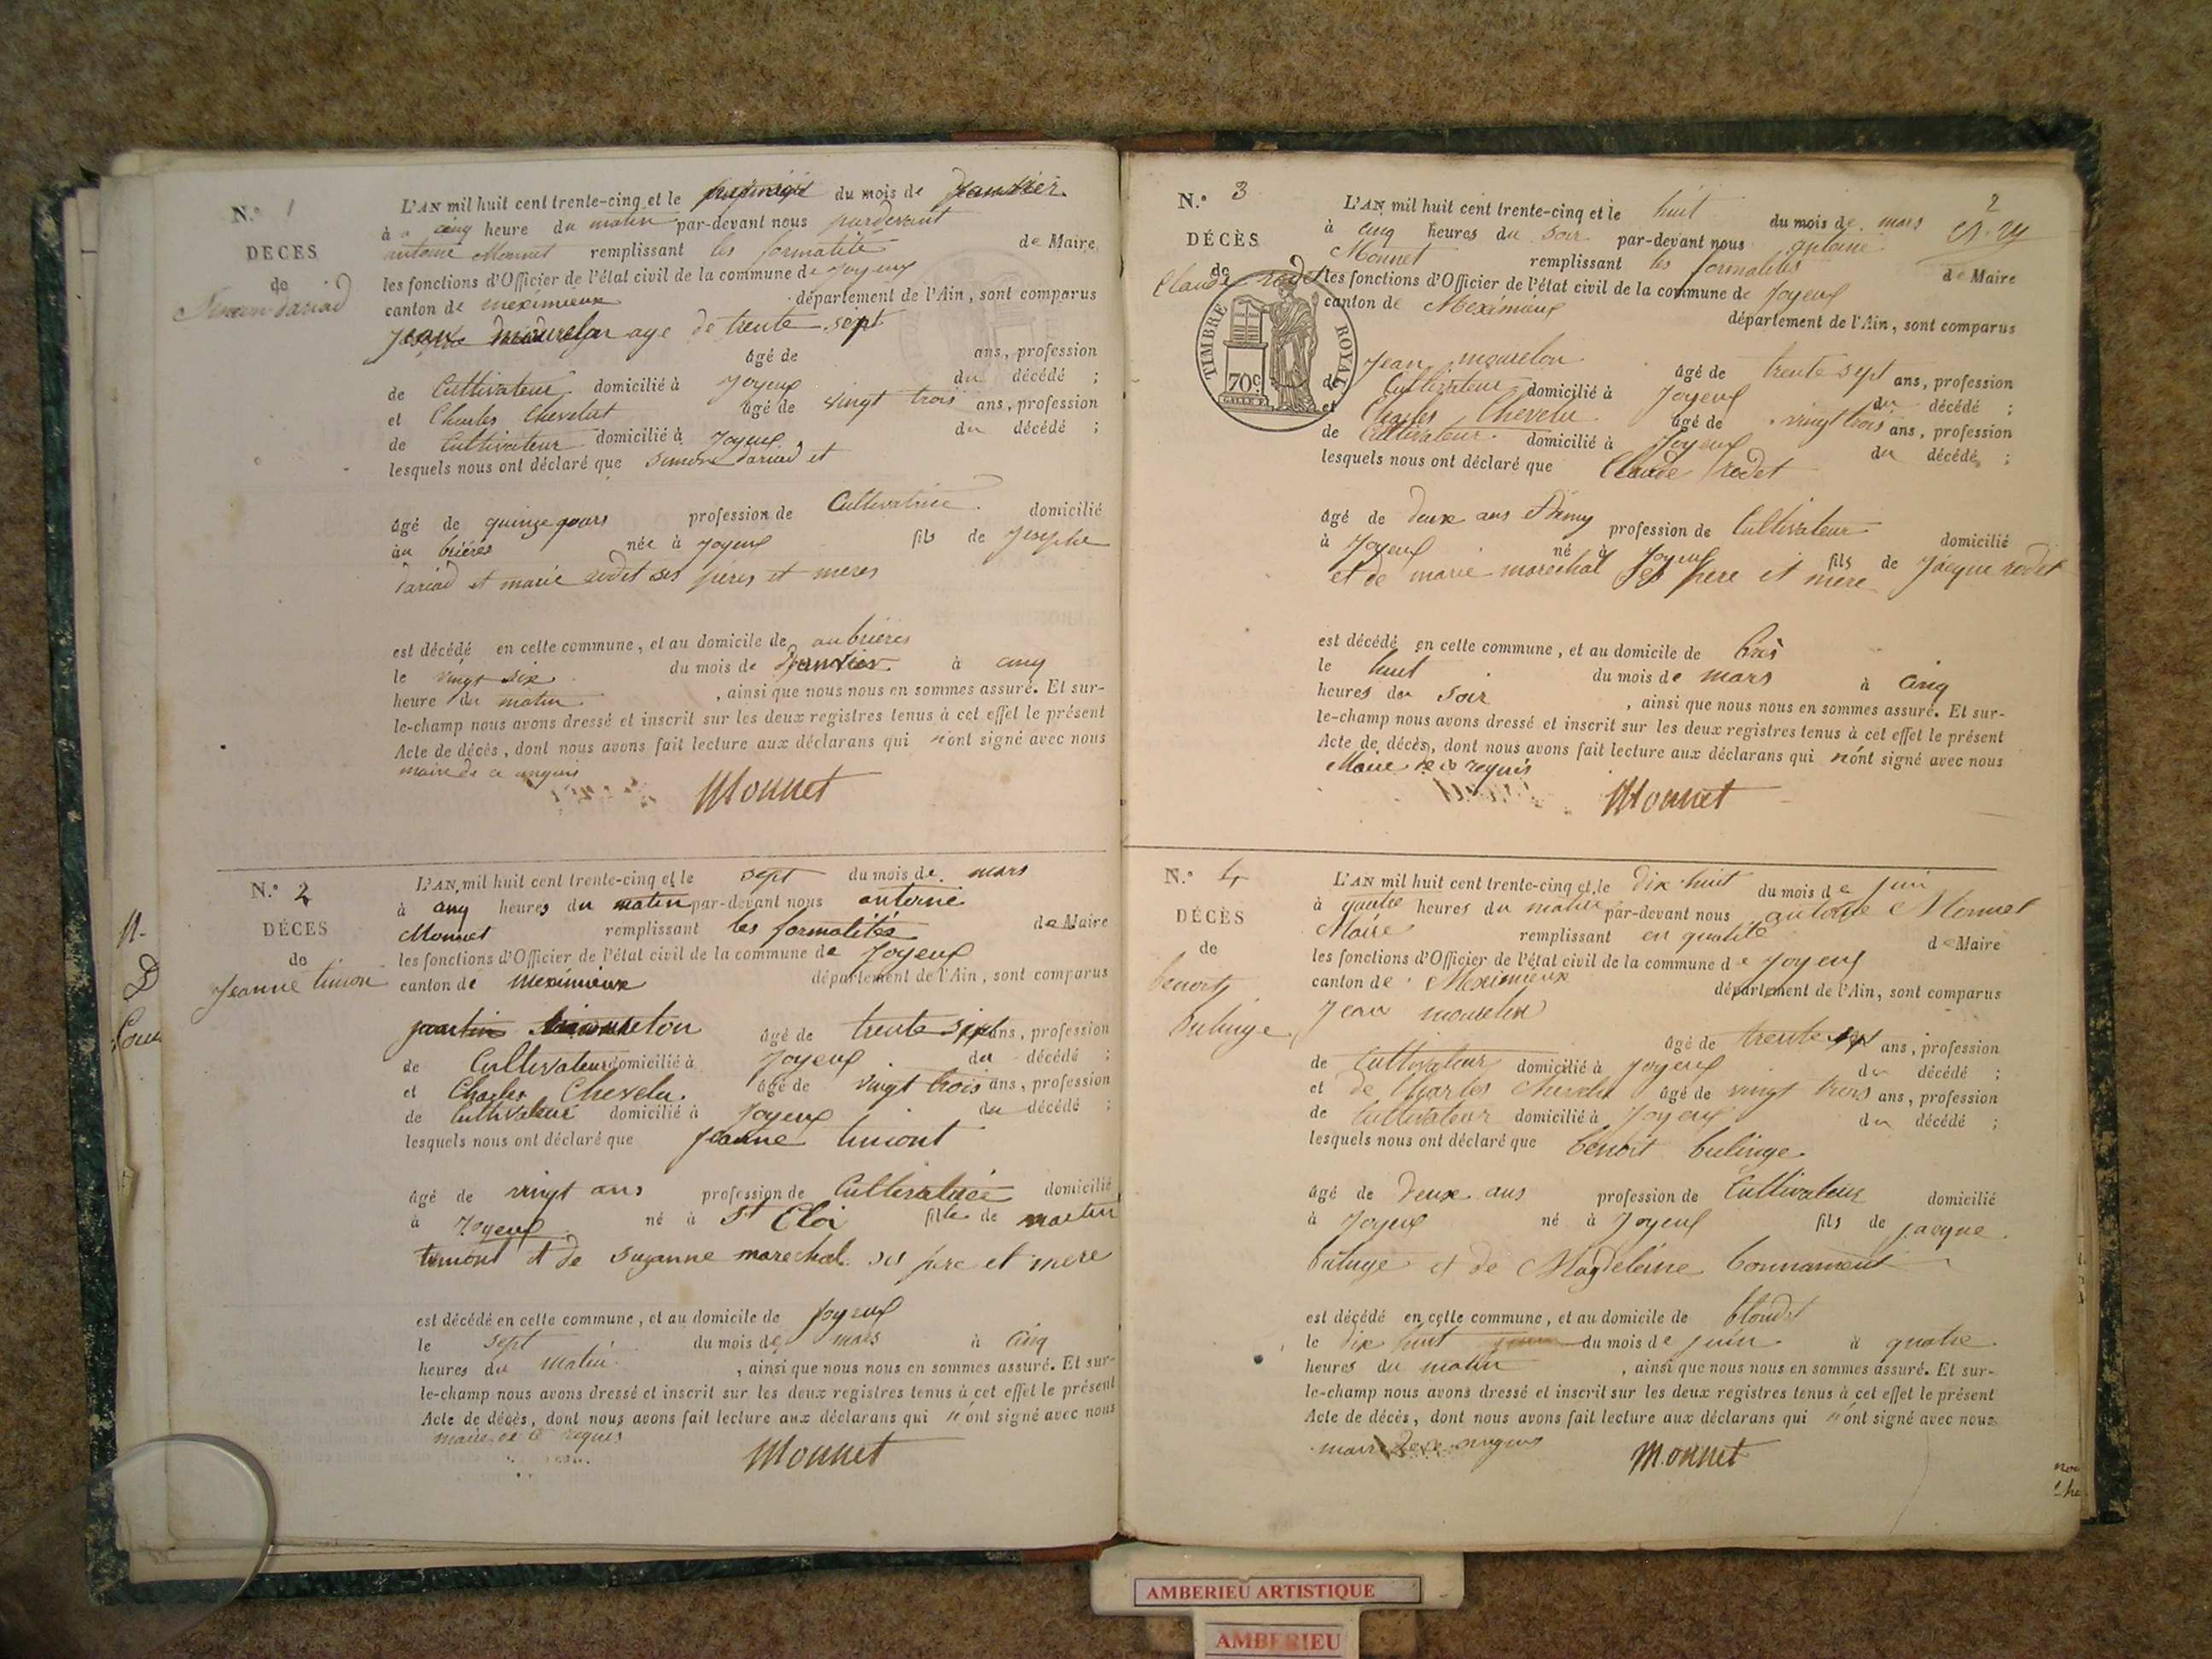 N.° 1
DÉCÈS
de
L'AN mil huit cent trente-cinq et le du mois de Janvier
à cinq heure du matin par-devant nous pardevant
antoine Monnet remplissant les formalité de Maire
les fonctions d'Officier de l'état civil de la commune de Joyeux
canton de meximieux département de l'Ain, sont comparus
Jean mourelon age de trente sept
âgé de ans, profession
de Cultivateur domicilié à Joyeux du décédé ;
et Charles Chevelut âgé de vingt trois ans, profession
de Cultivateur domicilié à Joyeux du décédé ;
lesquels nous ont déclaré que Simon dariad et
âgé de quinze jours profession de Cultivatrice domicilié
au brieres née à Joyeux fils de Josephe
dariad et marie rodet ses peres et meres
est décédé en cette commune, et au domicile de aubrieres
le vingt six du mois de Janvier à cinq
heure du matin, ainsi que nous nous en sommes assuré. Et sur-
le-champ nous avons dressé et inscrit sur les deux registres tenus à cet effet le présent
Acte de décès, dont nous avons fait lecture aux déclarans qui n'ont signé avec nous
maire de ce
Monnet
N.° 2
DÉCES
de
Jeanne timon
L'AN mil huit cent trente-cinq et le sept du mois de mars
à cinq heures du matin par-devant nous antoine
Monnet remplissant les formalités de Maire
les fonctions d'Officier de l'état civil de la commune de Joyeux
canton de meximieux département de l'Ain, sont comparus
mourelon âgé de trente sept ans, profession
de Cultivateur domicilié à Joyeux du décédé ;
et Charles Chevelu âgé de vingt trois ans, profession
de Cultivateur domicilié à Joyeux du décédé ;
lesquels nous ont déclaré que Jeanne timont
âgé de vingt ans profession de Cultivatrice domicilié
à Joyeux né à St Eloi fille de martin
timont et de Suzanne marechal ses pere et mere
est décédé en cette commune, et au domicile de Joyeux
le sept du mois de mars à cinq
heures du matin, ainsi que nous nous en sommes assuré. Et sur-
le-champ nous avons dressé et inscrit sur les deux registres tenus à cet effet le présent
Acte de décès, dont nous avons fait lecture aux déclarans qui n'ont signé avec nous
maire de ce requis
Monnet
2
N.° 3
DÉCÈS
de
Claude rodet
TIMBRE ROYAL
70c
L'AN mil huit cent trente-cinq et le huit du mois de mars
à cinq heures du soir par-devant nous antoine
Monnet remplissant les formalités de Maire
les fonctions d'Officier de l'état civil de la commune de Joyeux
canton de Meximieux département de l'Ain, sont comparus
Jean mourelon âgé de trente sept ans, profession
de Cultivateur domicilié à Joyeux du décédé ;
et Charles Chevelu âgé de vingt trois ans, profession
de Cultivateur domicilié à Joyeux du décédé ;
lesquels nous ont déclaré que Claude rodet
âgé de deux ans et demy profession de Cultivateur domicilié
à Joyeux né à Joyeux fils de Jacque rodet
et de marie marechal ses pere et mere
est décédé en cette commune, et au domicile de
le huit du mois de mars à cinq
heures du soir, ainsi que nous nous en sommes assuré. Et sur-
le-champ nous avons dressé et inscrit sur les deux registres tenus à cet effet le présent
Acte de décès, dont nous avons fait lecture aux déclarans qui n'ont signé avec nous
Maire de ce requis
Monnet
N.° 4
DÉCÈS
de
benoit
bulinge
L'AN mil huit cent trente-cinq et le dix huit du mois de juin
à quatre heures du matin par-devant nous antoine Monnet
Maire remplissant en qualité de Maire
les fonctions d'Officier de l'état civil de la commune de Joyeux
canton de Meximieux département de l'Ain, sont comparus
Jean mourelon
âgé de trente sept ans, profession
de Cultivateur domicilié à Joyeux du décédé ;
et de Charles Chevelu âgé de vingt trois ans, profession
de Cultivateur domicilié à Joyeux du décédé ;
lesquels nous ont déclaré que benoit bulinge
âgé de deux ans profession de Cultivateur domicilié
à Joyeux né à Joyeux fils de jacque
et de Magdeleine bonnament
est décédé en cette commune, et au domicile de
le dix huit du mois de juin à quatre
heures du matin, ainsi que nous nous en sommes assuré. Et sur-
le-champ nous avons dressé et inscrit sur les deux registres tenus à cet effet le présent
Acte de décès, dont nous avons fait lecture aux déclarans qui n'ont signé avec nous
maire
Monnet
AMBERIEU ARTISTIQUE
AMBERIEU